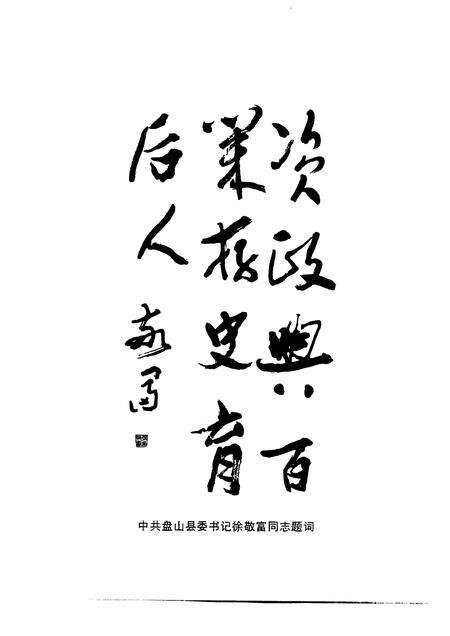 资政兴百
业存史育
后人
敬富
中共盘山县委书记徐敬富同志题词